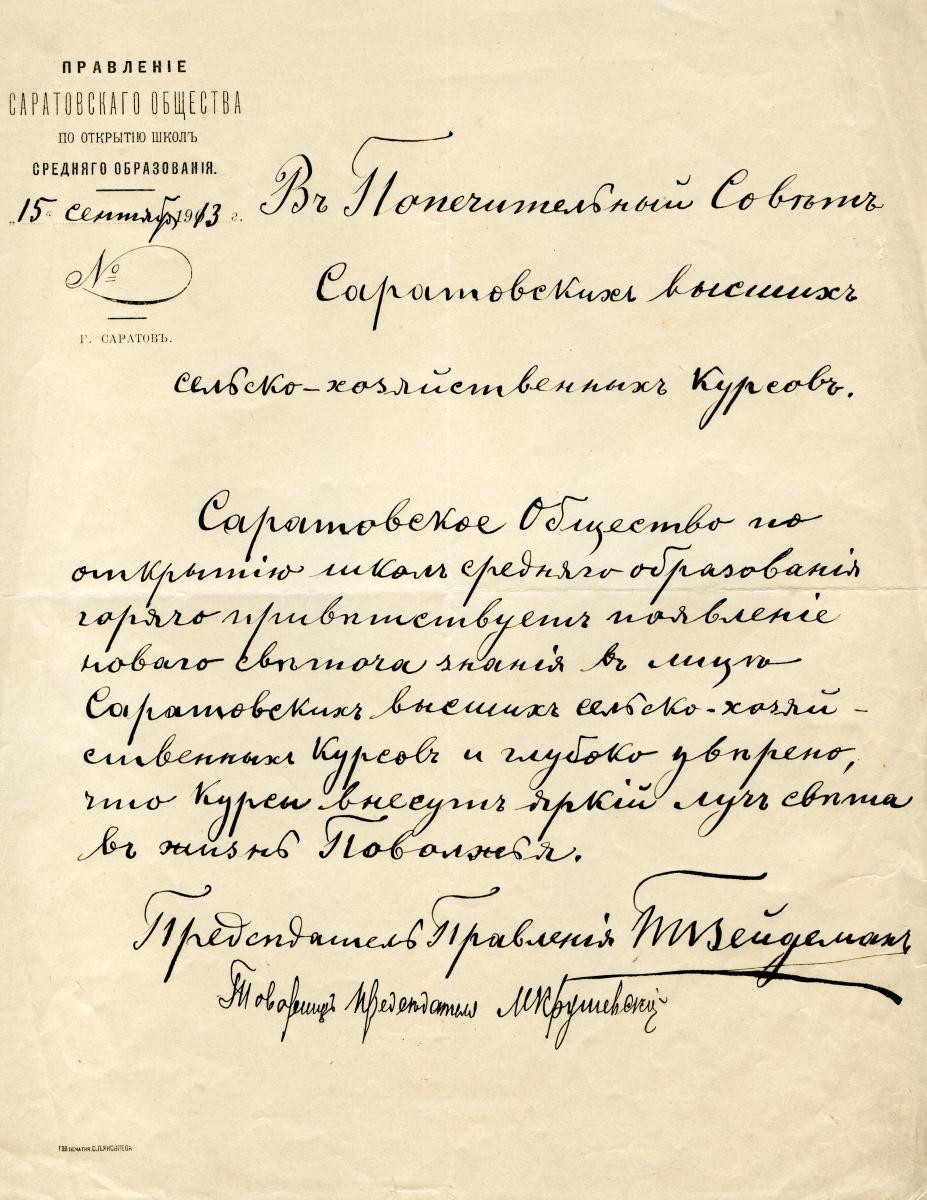 ПРАВЛЕНІЕ
САРАТОВСКАГО ОБЩЕСТВА
ПО ОТКРЫТІЮ ШКОЛЪ
СРЕДНЯГО ОБРАЗОВАНІЯ.
„15“ сентября 1913 г.
№
Г. САРАТОВЪ.
Въ Попечительный Совѣтъ
Саратовскихъ высшихъ
сельско-хозяйственныхъ Курсовъ.
Саратовское Общество по
открытію школъ средняго образованія
горячо привѣтствуетъ появленіе
новаго свѣточа знанія въ лицѣ
Саратовскихъ высшихъ сельско-хозяй-
ственныхъ Курсовъ и глубоко увѣрено,
что Курсы внесутъ яркій лучъ свѣта
въ жизнь Поволжья.
Предсѣдатель Правленія Зейдеманъ
Товарищъ предсѣдателя М Крушевскій
С.П.ЯКОВЛЕВА